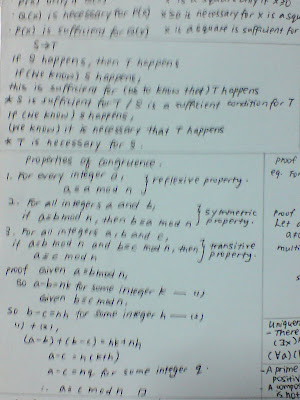 P(x) only if Q(x)
x is a square only if x≥0
Q(x) is necessary for P(x)
x≥0 is necessary for x is a square
P(x) is sufficient for Q(x)
x is a square is sufficient for
S→T
if S happens, then T happens
if (we know) S happens,
this is sufficient for (us to know that) T happens
* S is sufficient for T / S is a sufficient condition for T
if (we know) S happens,
(we know) it is necessary that T happens
* T is necessary for S.
Properties of congruence.
1. For every integer a,
a≡a mod n
} reflexive property.
2. For all integers a and b,
if a≡b mod n, then b≡a mod n
} symmetric property
3. For all integers a, b and c,
if a≡b mod n and b≡c mod n, then
a≡c mod n
} transitive property.
proof Given a≡b mod n,
so a-b=nk for some integer k — (1)
Given b≡c mod n,
so b-c=nh for some integer h — (2)
(1) + (2),
(a-b)+(b-c)=nk+nh
a-c=n(k+h)
a-c=nq for some integer q.
∴ a≡c mod n □
proof
eg. For
Proof
Let
multi
- There
(∃x)
(∀a)(
- A prime
positiv